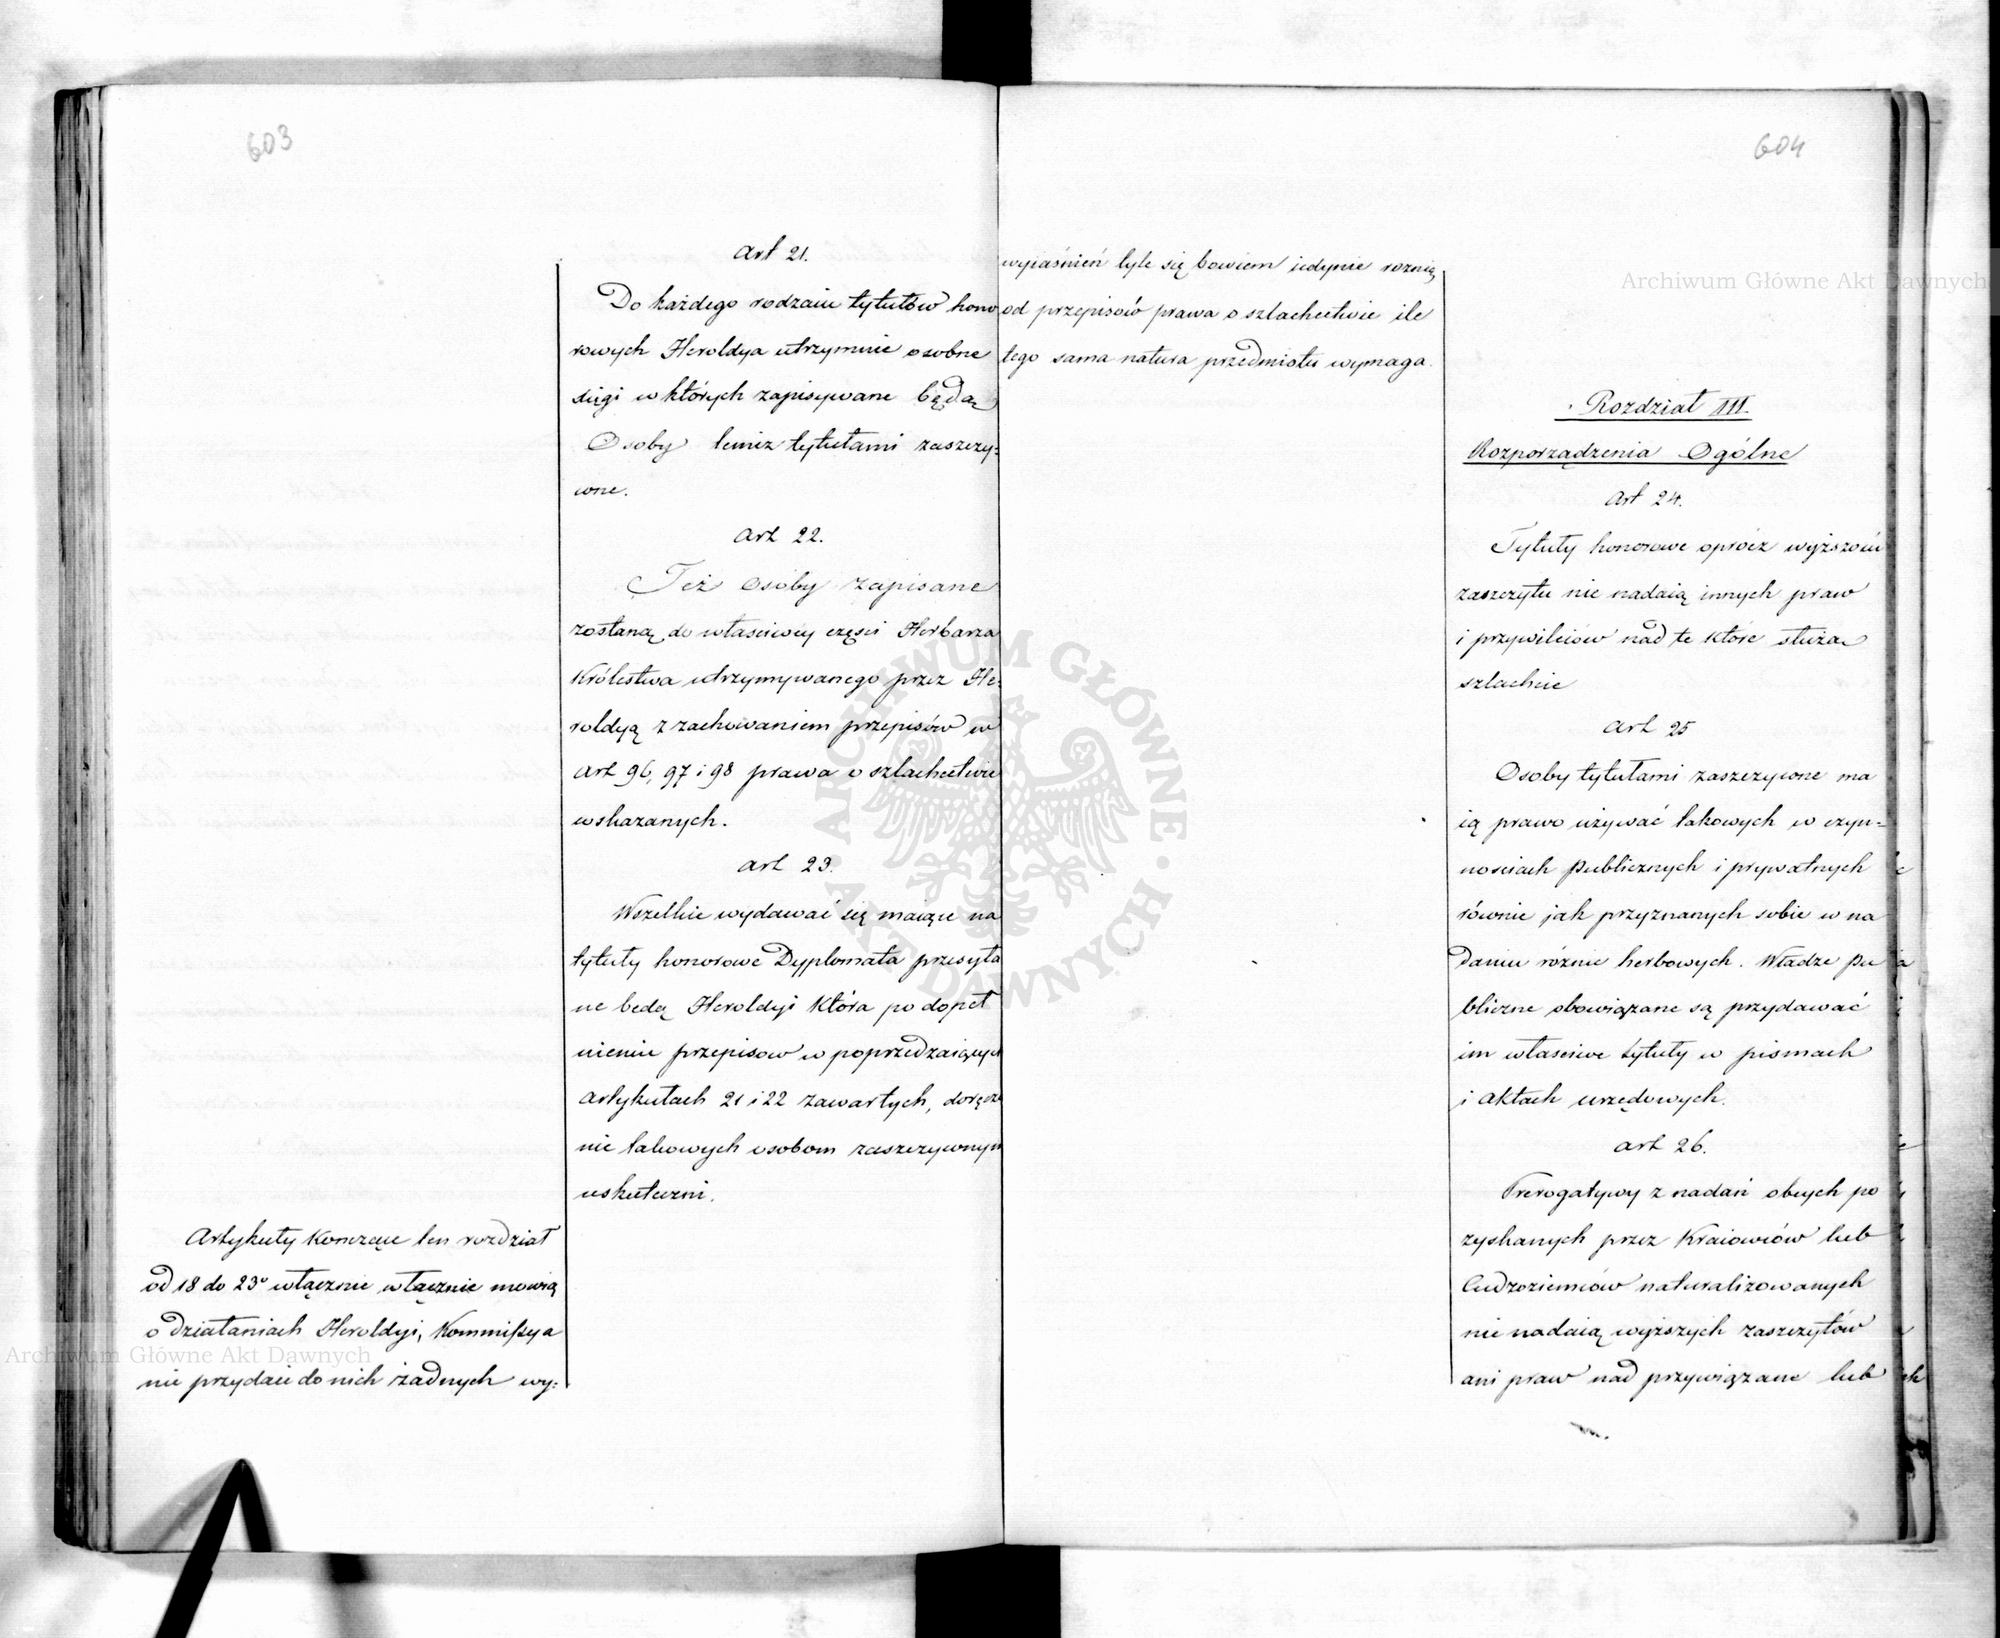 603
Art 21.
Do każdego rodzaiu tytułów hono
rowych Heroldya utrzymuie osobne
sięgi w których zapisywane będą
Osoby temiż tytułami zaszczy=
cone.
Art 22.
Też osoby zapisane
zostaną do właściwey części Herbarza
Królestwa utrzymywanego przez He=
roldyą z zachowaniem przepisów w
Art 96, 97 i 98 prawa o szlachectwie
wskazanych.
Art 23.
Wszelkie wydawać się maiące na
tytuły honorowe Dyplomata przesyła
ne bedą Heroldyi która po dopeł
nieniu przepisow w poprzedzaiących
Artykułach 21 i 22 zawartych, doręcze
nie takowych osobom zaszczyconym
uskuteczni.
Artykuły kończące ten rozdział
od 18 do 23º włącznie włącznie mowią
o działaniach Heroldyi, Kommissya
nie przydaie do nich żadnych wy=
604
wyiaśnień tyle się bowiem iedynie roznią
od przepisów prawa o szlachectwie ile
tego sama natura przedmiotu wymaga.
Rozdział III.
Rozporządzenia Ogólne
Art 24.
Tytuły honorowe oprócz wyższości
zaszczytu nie nadaią innych praw
i przywileiów nad te które służą
szlachcie
Art 25
Osoby tytułami zaszczycone ma
ią prawo używać takowych w czyn=
nościach publicznych i prywatnych
równie jak przyznanych sobie w na
daniu różnic herbowych. Władze pu
bliczne obowiązane są przydawać
im właściwe tytuły w pismach
i Aktach urzędowych.
Art 26.
Prerogatywy z nadań obcych po
zyskanych przez Kraiowców lub
Cudzoziemców naturalizowanych
nie nadaią wyższych zaszczytów
ani praw nad przywiązane lub
Archiwum Główne Akt Dawnych
Archiwum Główne Akt Dawnych
ARCHIWUM GŁÓWNE · AKT DAWNYCH ·